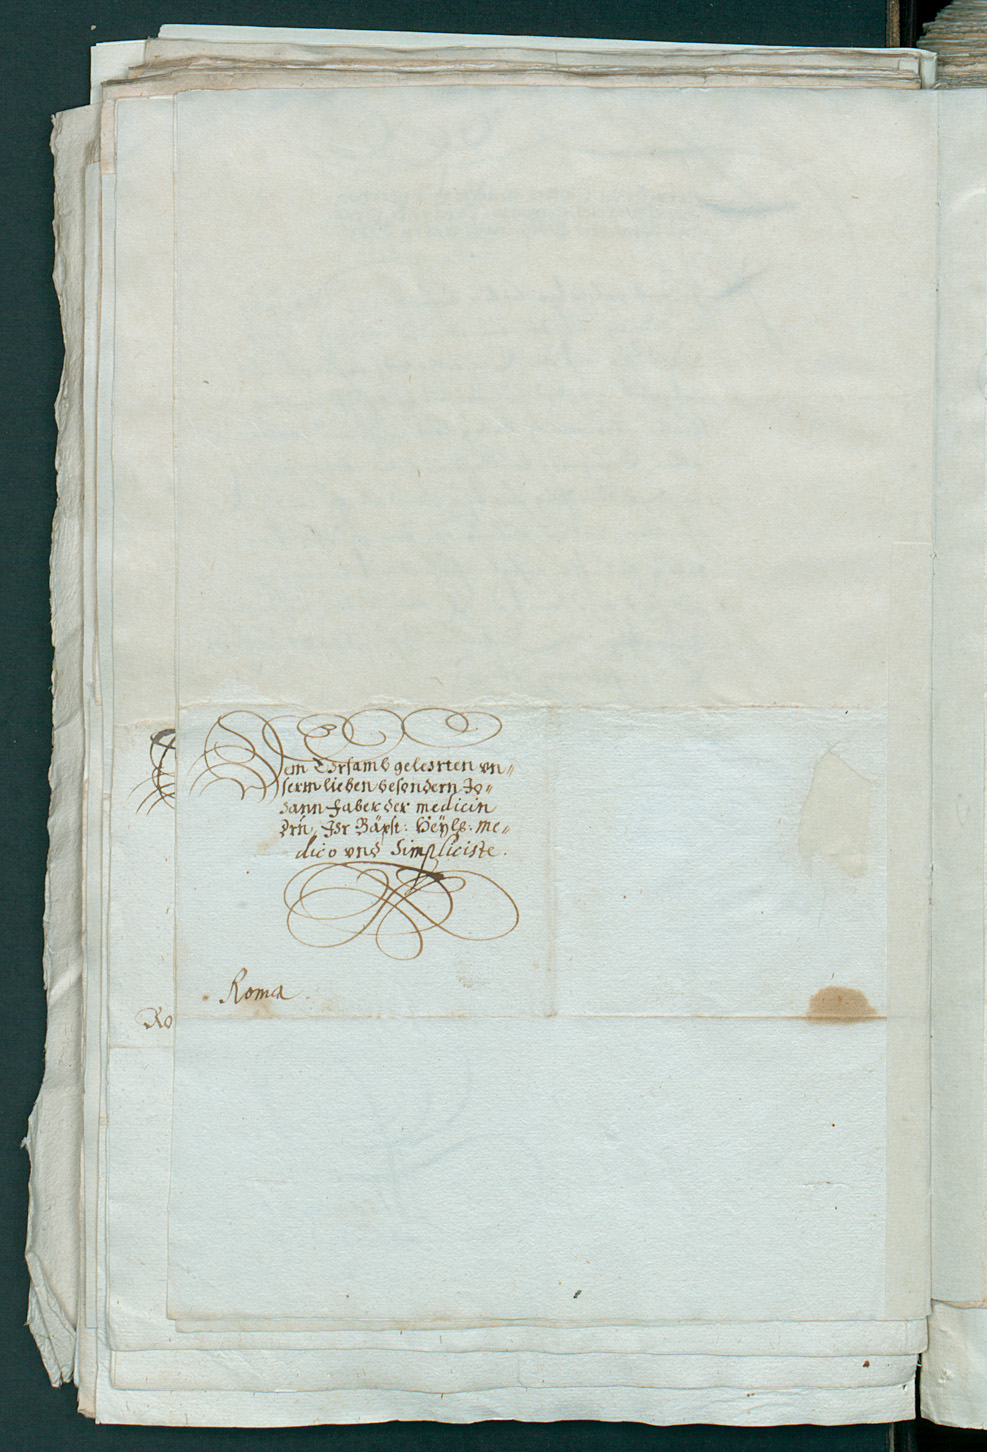 Dem Ehrsamb gelehrten un„
serm lieben besondern Jo„
hann Faber der medicin
Drn, Ihr Bäpst: Heyl: me„
dico und Simpliciste.
Roma.
Ro